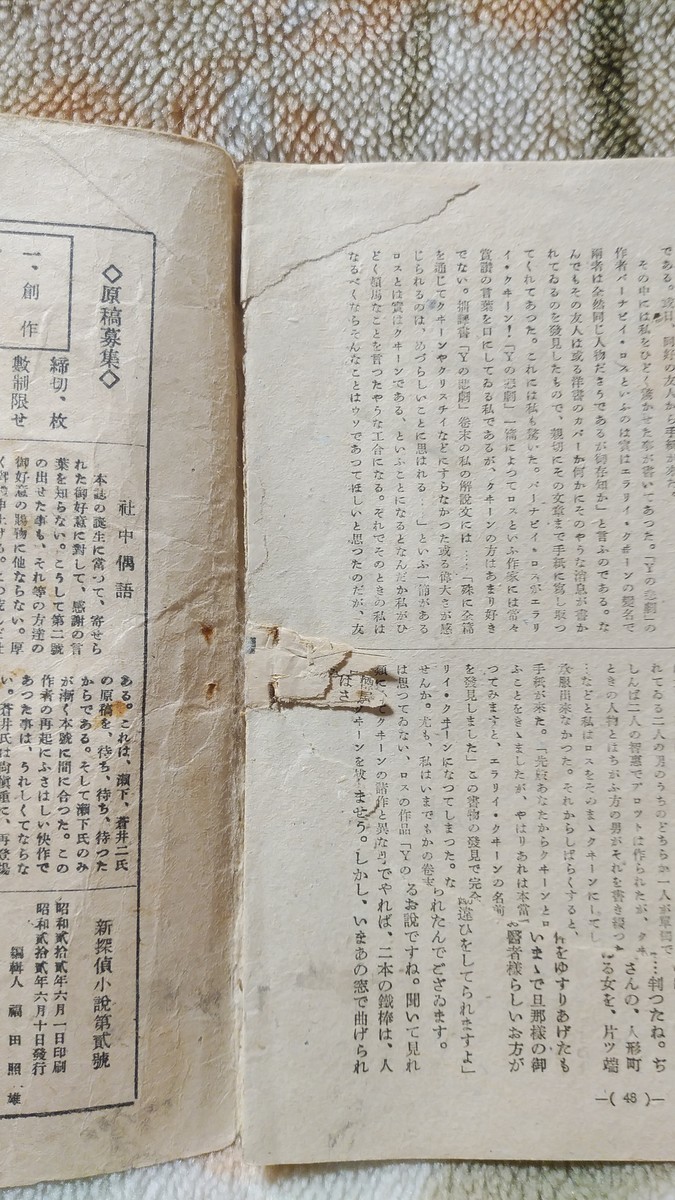 である。或日、同好の友人から手紙が來た。
その中には私をひどく驚かせた事が書いてあつた。「Yの悲劇」の
作者バーナビイ・ロスといふのは實はエラリイ・クヰーンの變名で
兩者は全然同じ人物ださうであるが御存知か」と言ふのである。な
んでもその友人は或る洋書のカバーか何かにそのやうな消息が書か
れてゐるのを發見したもので、親切にその文章まで手紙に寫し取つ
てくれてあつた。これには私も驚いた。バーナビイ・ロスがエラリ
イ・クヰーン!「Yの悲劇」一篇によつてロスといふ作家には常々
賞讃の言葉を口にしてゐる私であるが、クヰーンの方はあまり好き
でない。拙譯書「Yの悲劇」卷末の私の解說文には…「殊に全篇
を通じてクヰーンやクリスチイなどにすらなかつた或る偉大さが感
じられるのは、めづらしいことに思はれる…」といふ一節がある
ロスとは實はクヰーンである、といふことになるとなんだか私がひ
どく頓馬なことを言つたやうな工合になる。それでそのときの私は
なるべくならそんなことはウソであつてほしいと思つたのだが、友
れてゐる二人の男のうちのどちらか一人が單獨で
しんば二人の智惠でプロツトは作られたが、クヰ
ときの人物とはちがふ方の男がそれを書き綴つ
…などと私はロスをそのまゝクヰーンにしてし
承服出來なかつた。それからしばらくすると、
手紙が來た。「先般あなたからクヰーンとロ
ふことをきゝましたが、やはりあれは本當
つてみますと、エラリイ・クヰーンの名前
を發見しました」この書物の發見で完全
リイ・クヰーンになつてしまつた。な
せんか。尤も、私はいまでもかの卷末
は思つてゐない、ロスの作品「Yの
クヰーンの諸作と異な
…判つたね。ぢ
さんの、人形町
る女を、片ツ端
をゆすりあげたも
いまゝで旦那様の御
醫者様らしいお方が
違ひをしてられますよ」
られたんでござゐます。
るお說ですね。聞いて見れ
でやれば、二本の鐵棒は、人
ませう。しかし、いまあの窓で曲げられ
—( 48 )—
◇原稿募集◇
一、創作
締切、枚
數制限せ
社中偶語
本誌の誕生に當つて、寄せら
れた御好意に對して、感謝の言
葉を知らない。こうして第二號
の出せた事も、それ等の方達の
御好意の賜物に他ならない。厚
ある。これは、瀨下、蒼井二氏
の原稿を、待ち、待ち、待つた
からである。そして瀨下氏のみ
が漸く本號に間に合つた。この
作者の再起にふさはしい快作で
あつた事は、うれしくてならな
い。蒼井氏は
新探偵小說第貳號
昭和貳拾貳年六月一日印刷
昭和貳拾貳年六月十日發行
編輯人 福田照雄